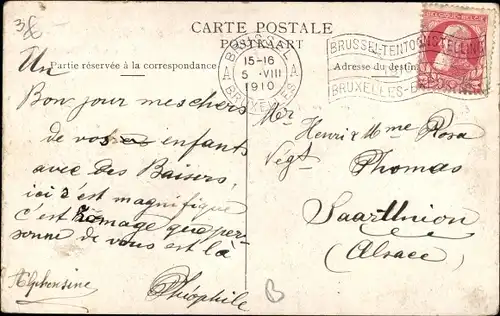 3
CARTE POSTALE
POSTKAART
Partie réservée à la correspondance
Adresse du destin
BRUSSEL
15-16
5 VIII
1910
BRUXELLES
BRUSSEL-TENTOONSTELLING
BRUXELLES-E
BELGIQUE-BELGIË
Un
Bon jour mes chers
de vos enfants
avec des Baisers,
ici s'est magnifique
c'est domage que per-
sonne de vous est là
Alphonsine
Théophile
Mer
Henri & Mme Rosa
Végt Thomas
Saar Union
(Alsace)
B